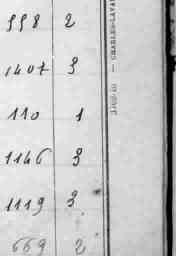 998 2
1407 3
110 1
1146 3
1119 3
669 2
— CHARLES-LAVAU